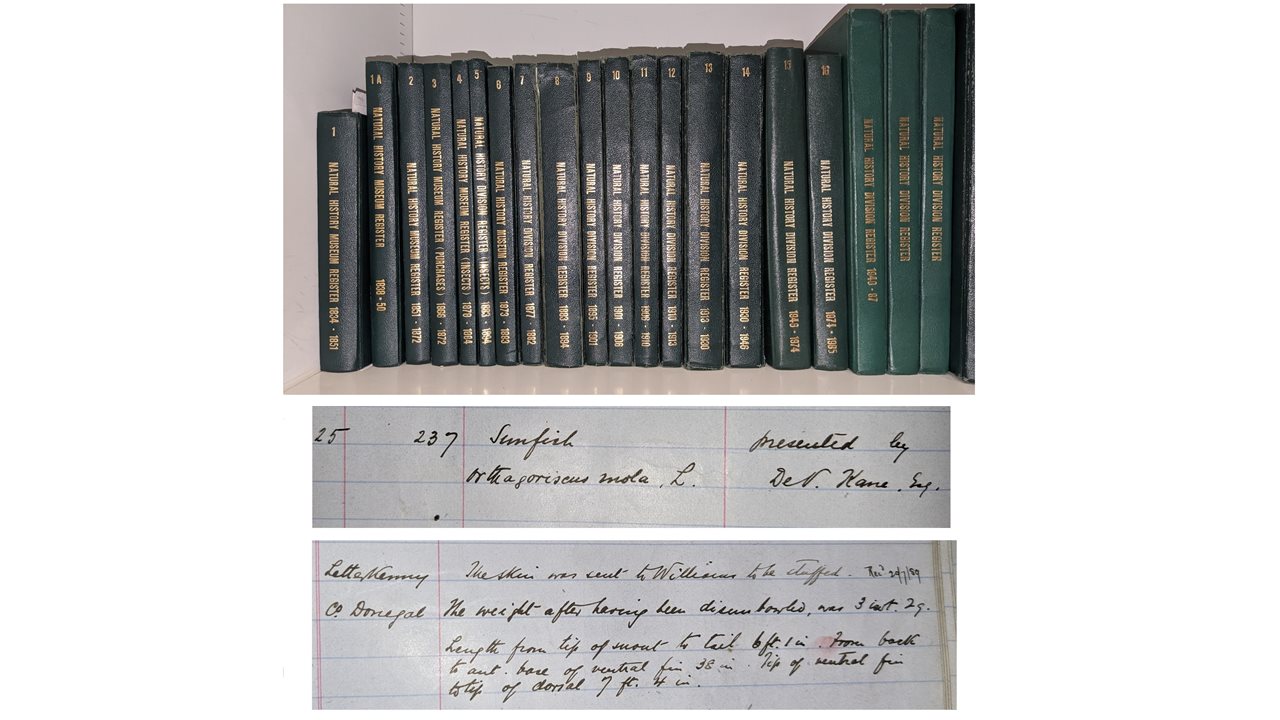 1 NATURAL HISTORY MUSEUM REGISTER 1834 - 1851
1A NATURAL HISTORY MUSEUM REGISTER 1838 - 50
2 NATURAL HISTORY MUSEUM REGISTER 1851 - 1872
3 NATURAL HISTORY MUSEUM REGISTER (PURCHASES) 1866 - 1872
4 NATURAL HISTORY MUSEUM REGISTER (INSECTS) 1879 - 1884
5 NATURAL HISTORY DIVISION REGISTER (INSECTS) 1883 - 1894
6 NATURAL HISTORY MUSEUM REGISTER 1873 - 1883
7 NATURAL HISTORY DIVISION REGISTER 1877 - 1882
8 NATURAL HISTORY DIVISION REGISTER 1883 - 1894
9 NATURAL HISTORY DIVISION REGISTER 1895 - 1901
10 NATURAL HISTORY DIVISION REGISTER 1901 - 1906
11 NATURAL HISTORY DIVISION REGISTER 1906 - 1910
12 NATURAL HISTORY DIVISION REGISTER 1910 - 1913
13 NATURAL HISTORY DIVISION REGISTER 1913 - 1930
14 NATURAL HISTORY DIVISION REGISTER 1930 - 1946
15 NATURAL HISTORY DIVISION REGISTER 1946 - 1974
16 NATURAL HISTORY DIVISION REGISTER 1974 - 1985
NATURAL HISTORY DIVISION REGISTER
NATURAL HISTORY DIVISION REGISTER
NATURAL HISTORY DIVISION REGISTER
25 237 Sunfish presented by
Orthagoriscus mola, L. DeV. Kane, Esq.
Letterkenny The skin was sent to Williams to be stuffed.
Co Donegal The weight after having been disembowled, was 3 cwt. 2q.
Length from tip of snout to tail 6 ft. 1 in. From back
to ant. base of ventral fin 38 in. Tip of ventral fin
to tip of dorsal 7 ft. 4 in.